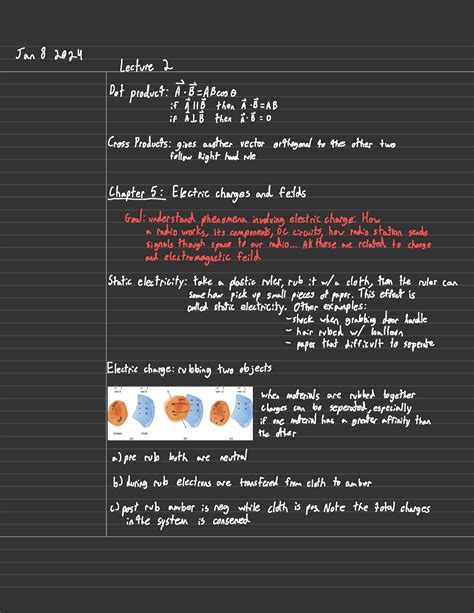 Jan 8 2024
Lecture 2
Dot product: A⃗ · B⃗ = ABcosθ
if A⃗ ∥ B⃗ then A⃗ · B⃗ = AB
if A⃗ ⊥ B⃗ then A⃗ · B⃗ = 0
Cross Products: gives another vector orthogonal to the other two
follow Right hand rule
Chapter 5: Electric charges and feilds
Goal: understand phenomena involving electric charge: How
a radio works, its components, DC circuits, how radio station sends
signals though space to our radio... All these are related to charge
and electromagnetic feild
Static electricity: take a plastic ruler, rub it w/ a cloth, then the ruler can
some how pick up small pieces of paper. This effect is
called static electricity. Other examples:
- shock when grabbing door handle
- hair rubed w/ balloon
- paper that difficult to seperate
Electric charge: rubbing two objects
Amber Cloth
(a) (b) (c)
When materials are rubbed together
charges can be seperated, especially
if one material has a greater affinity than
the other
a) pre rub both are neutral
b) during rub electrons are transfered from cloth to amber
c) post rub amber is neg while cloth is pos. Note the total charges
in the system is conserved